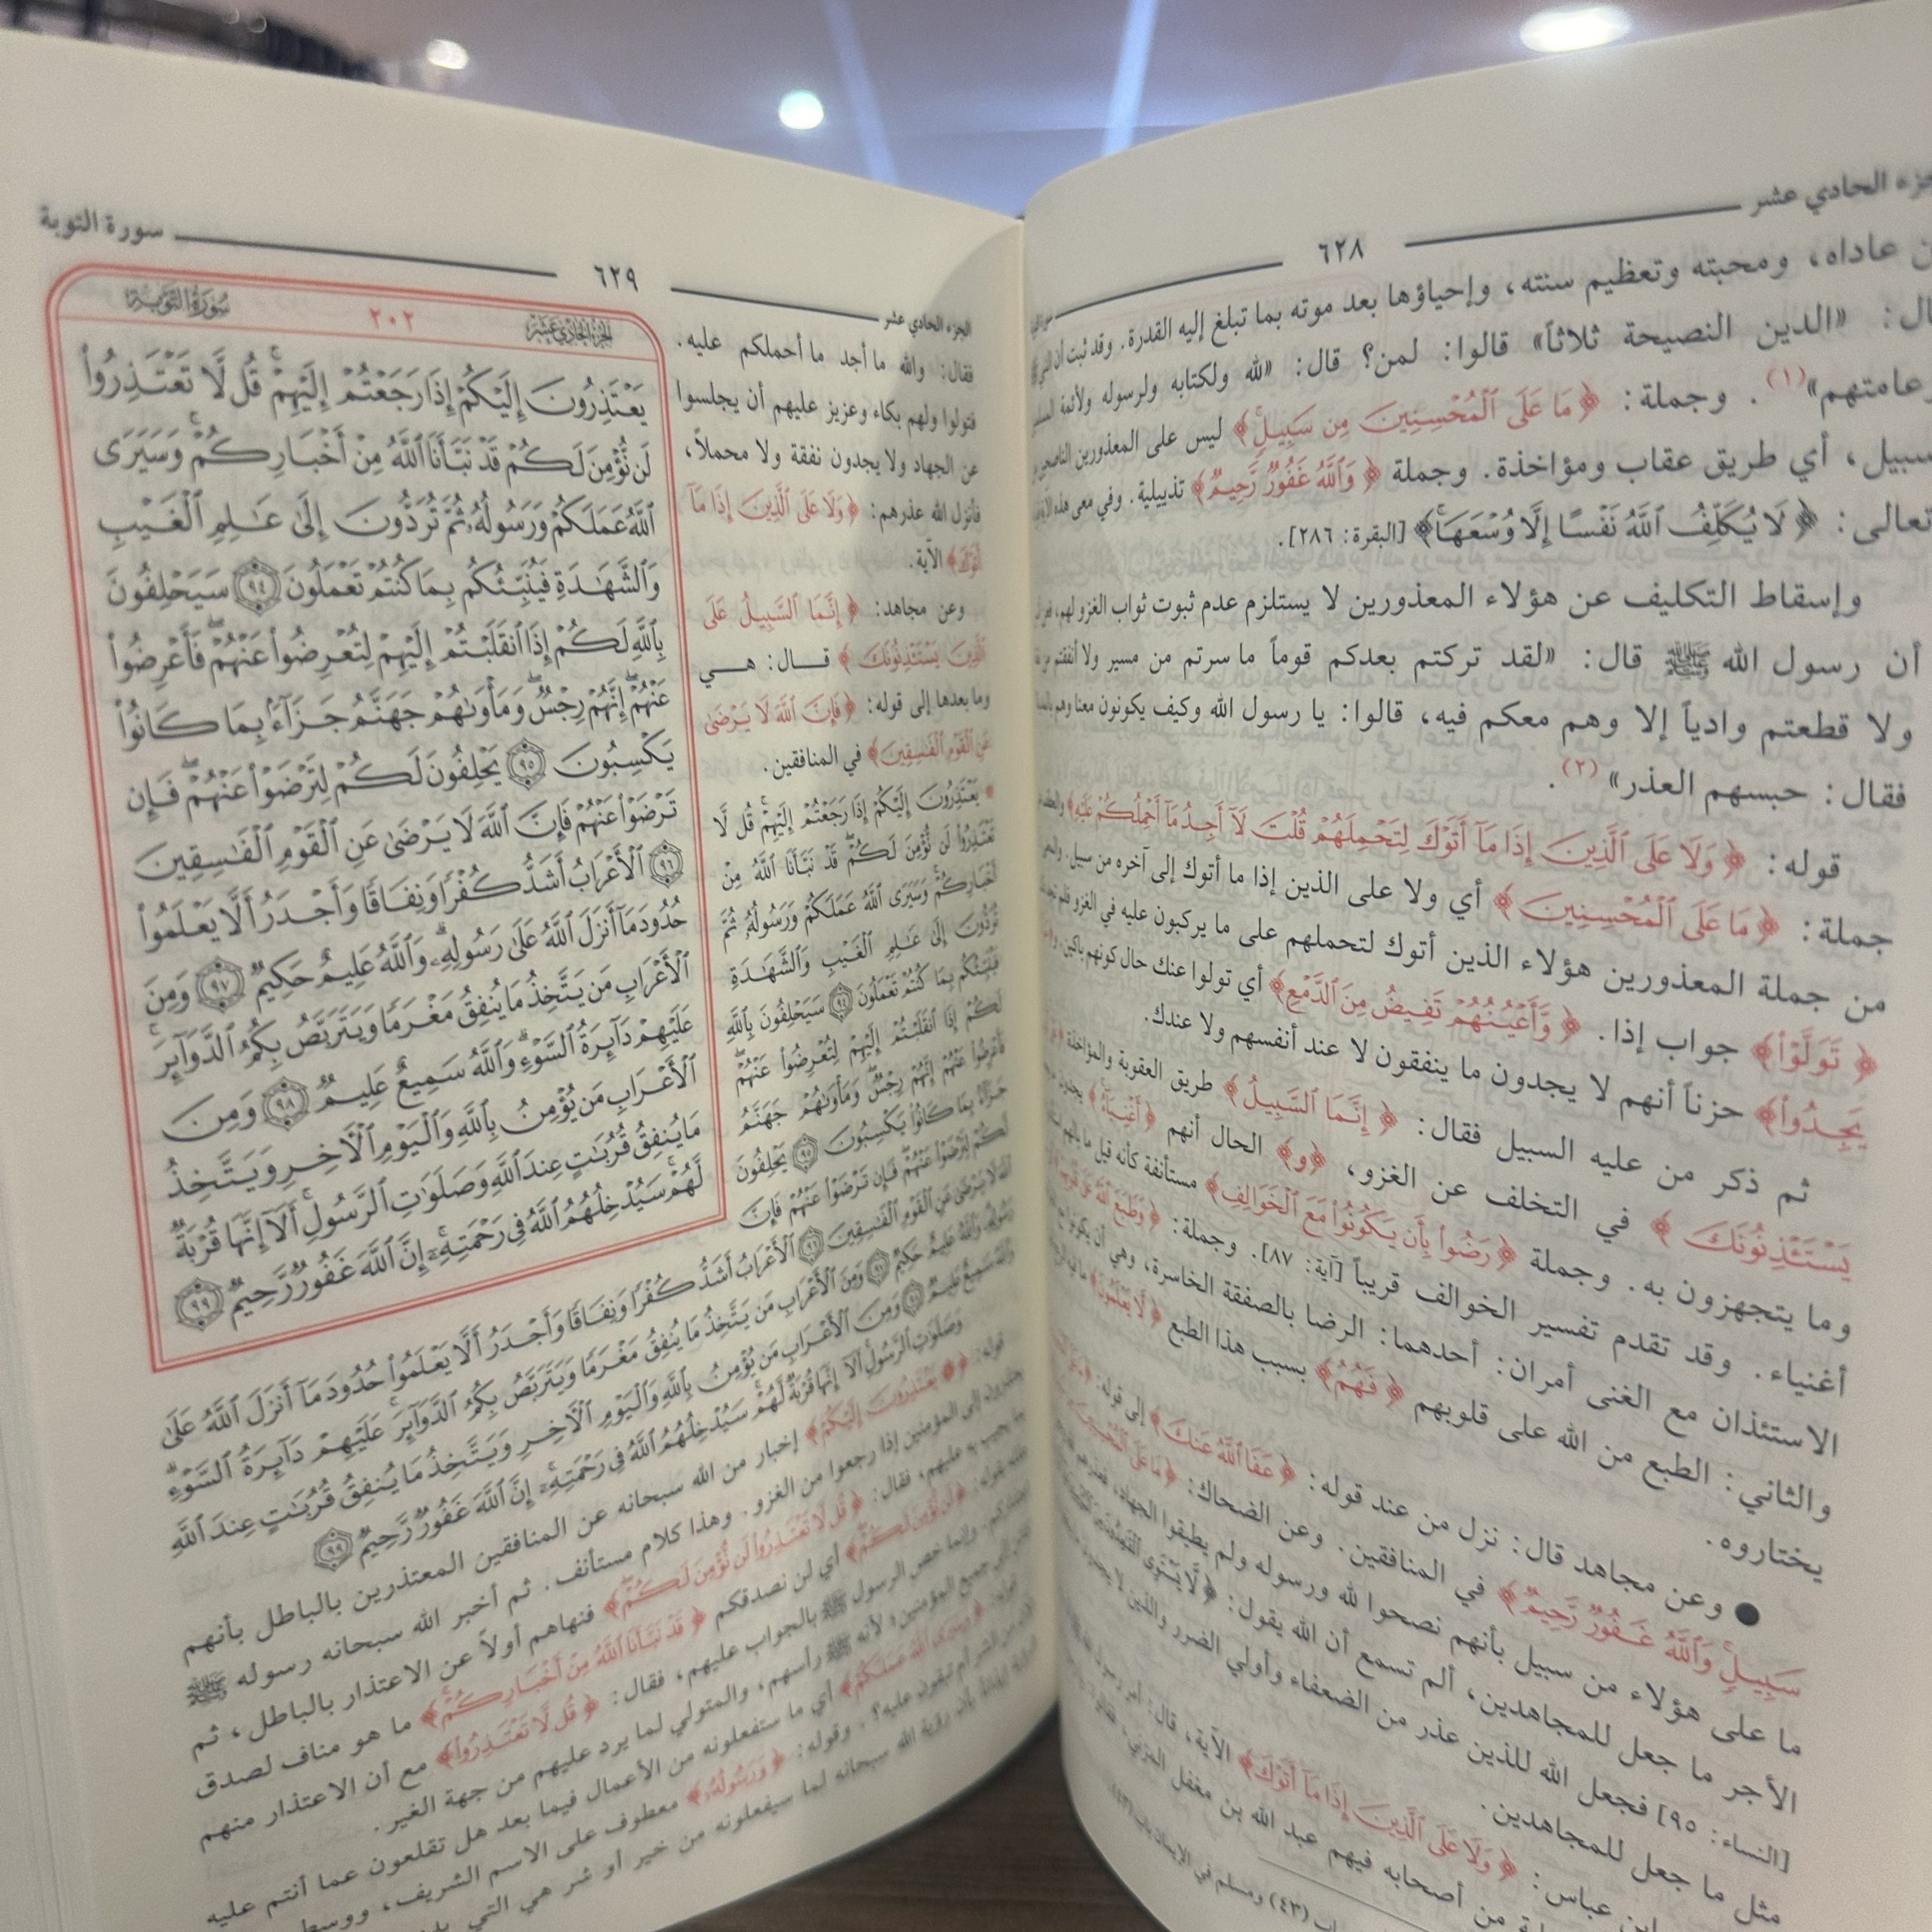 الجزء الحادي عشر
٦٢٨
عاداه، ومحبته وتعظيم سنته، وإحياؤها بعد موته بما تبلغ إليه القدرة. وقد ثبت أن
«الدين النصيحة ثلاثاً» قالوا: لمن؟ قال: «لله ولكتابه ولرسوله ولأئمة
وعامتهم»(١). وجملة: ﴿مَا عَلَى ٱلْمُحْسِنِينَ مِن سَبِيلٍ﴾ ليس على المعذورين الناصحين
سبيل، أي طريق عقاب ومؤاخذة. وجملة ﴿وَٱللَّهُ غَفُورٌ رَّحِيمٌ﴾ تذييلية. وفي معنى هذه
تعالى: ﴿لَا يُكَلِّفُ ٱللَّهُ نَفْسًا إِلَّا وُسْعَهَا﴾ [البقرة: ٢٨٦].
وإسقاط التكليف عن هؤلاء المعذورين لا يستلزم عدم ثبوت ثواب الغزو لهم،
أن رسول الله ﷺ قال: «لقد تركتم بعدكم قوماً ما سرتم من مسير ولا أنفقتم من
ولا قطعتم وادياً إلا وهم معكم فيه، قالوا: يا رسول الله وكيف يكونون معنا وهم
فقال: حبسهم العذر»(٢).
قوله: ﴿وَلَا عَلَى ٱلَّذِينَ إِذَا مَآ أَتَوْكَ لِتَحْمِلَهُمْ قُلْتَ لَآ أَجِدُ مَآ أَحْمِلُكُمْ عَلَيْهِ﴾
جملة: ﴿مَا عَلَى ٱلْمُحْسِنِينَ﴾ أي ولا على الذين إذا ما أتوك إلى آخره من سبيل.
من جملة المعذورين هؤلاء الذين أتوك لتحملهم على ما يركبون عليه في الغزو فلم تجد
﴿تَوَلَّوا۟﴾ جواب إذا. ﴿وَّأَعْيُنُهُمْ تَفِيضُ مِنَ ٱلدَّمْعِ﴾ أي تولوا عنك حال كونهم باكين،
يَجِدُوا۟﴾ حزناً أنهم لا يجدون ما ينفقون لا عند أنفسهم ولا عندك.
ثم ذكر من عليه السبيل فقال: ﴿إِنَّمَا ٱلسَّبِيلُ﴾ طريق العقوبة والمؤاخذة
يَسْتَـْٔذِنُونَكَ﴾ في التخلف عن الغزو، ﴿و﴾ الحال أنهم ﴿أَغْنِيَآءُ﴾ يجدون
وما يتجهزون به. وجملة ﴿رَضُوا۟ بِأَن يَكُونُوا۟ مَعَ ٱلْخَوَالِفِ﴾ مستأنفة كأنه قيل ما بالهم
أغنياء. وقد تقدم تفسير الخوالف قريباً [آية: ٨٧]. وجملة: ﴿وَطَبَعَ ٱللَّهُ عَلَىٰ قُلُوبِهِمْ
الاستئذان مع الغنى أمران: أحدهما: الرضا بالصفقة الخاسرة، وهي أن يكونوا
والثاني: الطبع من الله على قلوبهم ﴿فَهُمْ﴾ بسبب هذا الطبع ﴿لَا يَعْلَمُونَ﴾
يختاروه.
● وعن مجاهد قال: نزل من عند قوله: ﴿عَفَا ٱللَّهُ عَنكَ﴾ إلى قوله:
سَبِيلٍ وَٱللَّهُ غَفُورٌ رَّحِيمٌ﴾ في المنافقين. وعن الضحاك: ﴿مَا عَلَى ٱلْمُحْسِنِينَ
ما على هؤلاء من سبيل بأنهم نصحوا لله ورسوله ولم يطيقوا الجهاد،
الأجر ما جعل للمجاهدين، ألم تسمع أن الله يقول: ﴿لَّا يَسْتَوِى ٱلْقَـٰعِدُونَ
[النساء: ٩٥] فجعل الله للذين عذر من الضعفاء وأولي الضرر والذين لا يجدون
مثل ما جعل للمجاهدين.
ابن عباس: ﴿وَلَا عَلَى ٱلَّذِينَ إِذَا مَآ أَتَوْكَ﴾ الآية، قال: أمر رسول الله
من أصحابه فيهم عبد الله بن مغفل المزني،
(٤٣) ومسلم في الإيمان
الجزء الحادي عشر
٦٢٩
سورة التوبة
فقال: والله ما أجد ما أحملكم عليه.
فتولوا ولهم بكاء وعزيز عليهم أن يجلسوا
عن الجهاد ولا يجدون نفقة ولا محملاً،
فأنزل الله عذرهم: ﴿وَلَا عَلَى ٱلَّذِينَ إِذَا مَآ
أَتَوْكَ﴾ الآية.
وعن مجاهد: ﴿إِنَّمَا ٱلسَّبِيلُ عَلَى
ٱلَّذِينَ يَسْتَـْٔذِنُونَكَ﴾ قال: هي
وما بعدها إلى قوله: ﴿فَإِنَّ ٱللَّهَ لَا يَرْضَىٰ
عَنِ ٱلْقَوْمِ ٱلْفَـٰسِقِينَ﴾ في المنافقين.
يَعْتَذِرُونَ إِلَيْكُمْ إِذَا رَجَعْتُمْ إِلَيْهِمْ قُل لَّا
تَعْتَذِرُوا۟ لَن نُّؤْمِنَ لَكُمْ قَدْ نَبَّأَنَا ٱللَّهُ مِنْ
أَخْبَارِكُمْ وَسَيَرَى ٱللَّهُ عَمَلَكُمْ وَرَسُولُهُۥ ثُمَّ
تُرَدُّونَ إِلَىٰ عَـٰلِمِ ٱلْغَيْبِ وَٱلشَّهَـٰدَةِ
فَيُنَبِّئُكُم بِمَا كُنتُمْ تَعْمَلُونَ ٩٤ سَيَحْلِفُونَ بِٱللَّهِ
لَكُمْ إِذَا ٱنقَلَبْتُمْ إِلَيْهِمْ لِتُعْرِضُوا۟ عَنْهُمْ
فَأَعْرِضُوا۟ عَنْهُمْ إِنَّهُمْ رِجْسٌ وَمَأْوَىٰهُمْ جَهَنَّمُ
جَزَآءً بِمَا كَانُوا۟ يَكْسِبُونَ ٩٥ يَحْلِفُونَ
لَكُمْ لِتَرْضَوْا۟ عَنْهُمْ فَإِن تَرْضَوْا۟ عَنْهُمْ فَإِنَّ
ٱللَّهَ لَا يَرْضَىٰ عَنِ ٱلْقَوْمِ ٱلْفَـٰسِقِينَ ٩٦ ٱلْأَعْرَابُ أَشَدُّ كُفْرًا وَنِفَاقًا وَأَجْدَرُ أَلَّا يَعْلَمُوا۟ حُدُودَ مَآ أَنزَلَ ٱللَّهُ عَلَىٰ
رَسُولِهِۦ وَٱللَّهُ عَلِيمٌ حَكِيمٌ ٩٧ وَمِنَ ٱلْأَعْرَابِ مَن يَتَّخِذُ مَا يُنفِقُ مَغْرَمًا وَيَتَرَبَّصُ بِكُمُ ٱلدَّوَآئِرَ عَلَيْهِمْ دَآئِرَةُ ٱلسَّوْءِ
وَٱللَّهُ سَمِيعٌ عَلِيمٌ ٩٨ وَمِنَ ٱلْأَعْرَابِ مَن يُؤْمِنُ بِٱللَّهِ وَٱلْيَوْمِ ٱلْـَٔاخِرِ وَيَتَّخِذُ مَا يُنفِقُ قُرُبَـٰتٍ عِندَ ٱللَّهِ
وَصَلَوَٰتِ ٱلرَّسُولِ أَلَآ إِنَّهَا قُرْبَةٌ لَّهُمْ سَيُدْخِلُهُمُ ٱللَّهُ فِى رَحْمَتِهِۦٓ إِنَّ ٱللَّهَ غَفُورٌ رَّحِيمٌ ٩٩
قوله: ﴿يَعْتَذِرُونَ إِلَيْكُمْ﴾ إخبار من الله سبحانه عن المنافقين المعتذرين بالباطل بأنهم
يعتذرون إلى المؤمنين إذا رجعوا من الغزو. وهذا كلام مستأنف. ثم أخبر الله سبحانه رسوله ﷺ
يجيب به عليهم، فقال: ﴿قُل لَّا تَعْتَذِرُوا۟ لَن نُّؤْمِنَ لَكُمْ﴾ فنهاهم أولاً عن الاعتذار بالباطل، ثم
بقوله: ﴿لَن نُّؤْمِنَ لَكُمْ﴾ أي لن نصدقكم ﴿قَدْ نَبَّأَنَا ٱللَّهُ مِنْ أَخْبَارِكُمْ﴾ ما هو مناف لصدق
وإنما خص الرسول ﷺ بالجواب عليهم، فقال: ﴿قُل لَّا تَعْتَذِرُوا۟﴾ مع أن الاعتذار منهم
إلى جميع المؤمنين؛ لأنه ﷺ رأسهم، والمتولي لما يرد عليهم من جهة الغير.
﴿وَسَيَرَى ٱللَّهُ عَمَلَكُمْ﴾ أي ما ستفعلونه من الأعمال فيما بعد هل تقلعون عما أنتم عليه
من الشر أم تبقون عليه؟. وقوله: ﴿وَرَسُولُهُۥ﴾ معطوف على الاسم الشريف، ووسط
بأن رؤية الله سبحانه لما سيفعلونه من خير أو شر هي التي
سُورَةُ التَّوْبَةِ
٢٠٢
الجُزْءُ الحَادِي عَشَرَ
يَعْتَذِرُونَ إِلَيْكُمْ إِذَا رَجَعْتُمْ إِلَيْهِمْ قُل لَّا تَعْتَذِرُوا۟
لَن نُّؤْمِنَ لَكُمْ قَدْ نَبَّأَنَا ٱللَّهُ مِنْ أَخْبَارِكُمْ وَسَيَرَى
ٱللَّهُ عَمَلَكُمْ وَرَسُولُهُۥ ثُمَّ تُرَدُّونَ إِلَىٰ عَـٰلِمِ ٱلْغَيْبِ
وَٱلشَّهَـٰدَةِ فَيُنَبِّئُكُم بِمَا كُنتُمْ تَعْمَلُونَ ٩٤ سَيَحْلِفُونَ
بِٱللَّهِ لَكُمْ إِذَا ٱنقَلَبْتُمْ إِلَيْهِمْ لِتُعْرِضُوا۟ عَنْهُمْ فَأَعْرِضُوا۟
عَنْهُمْ إِنَّهُمْ رِجْسٌ وَمَأْوَىٰهُمْ جَهَنَّمُ جَزَآءً بِمَا كَانُوا۟
يَكْسِبُونَ ٩٥ يَحْلِفُونَ لَكُمْ لِتَرْضَوْا۟ عَنْهُمْ فَإِن
تَرْضَوْا۟ عَنْهُمْ فَإِنَّ ٱللَّهَ لَا يَرْضَىٰ عَنِ ٱلْقَوْمِ ٱلْفَـٰسِقِينَ
٩٦ ٱلْأَعْرَابُ أَشَدُّ كُفْرًا وَنِفَاقًا وَأَجْدَرُ أَلَّا يَعْلَمُوا۟
حُدُودَ مَآ أَنزَلَ ٱللَّهُ عَلَىٰ رَسُولِهِۦ وَٱللَّهُ عَلِيمٌ حَكِيمٌ ٩٧ وَمِنَ
ٱلْأَعْرَابِ مَن يَتَّخِذُ مَا يُنفِقُ مَغْرَمًا وَيَتَرَبَّصُ بِكُمُ ٱلدَّوَآئِرَ
عَلَيْهِمْ دَآئِرَةُ ٱلسَّوْءِ وَٱللَّهُ سَمِيعٌ عَلِيمٌ ٩٨ وَمِنَ
ٱلْأَعْرَابِ مَن يُؤْمِنُ بِٱللَّهِ وَٱلْيَوْمِ ٱلْـَٔاخِرِ وَيَتَّخِذُ
مَا يُنفِقُ قُرُبَـٰتٍ عِندَ ٱللَّهِ وَصَلَوَٰتِ ٱلرَّسُولِ أَلَآ إِنَّهَا قُرْبَةٌ
لَّهُمْ سَيُدْخِلُهُمُ ٱللَّهُ فِى رَحْمَتِهِۦٓ إِنَّ ٱللَّهَ غَفُورٌ رَّحِيمٌ ٩٩